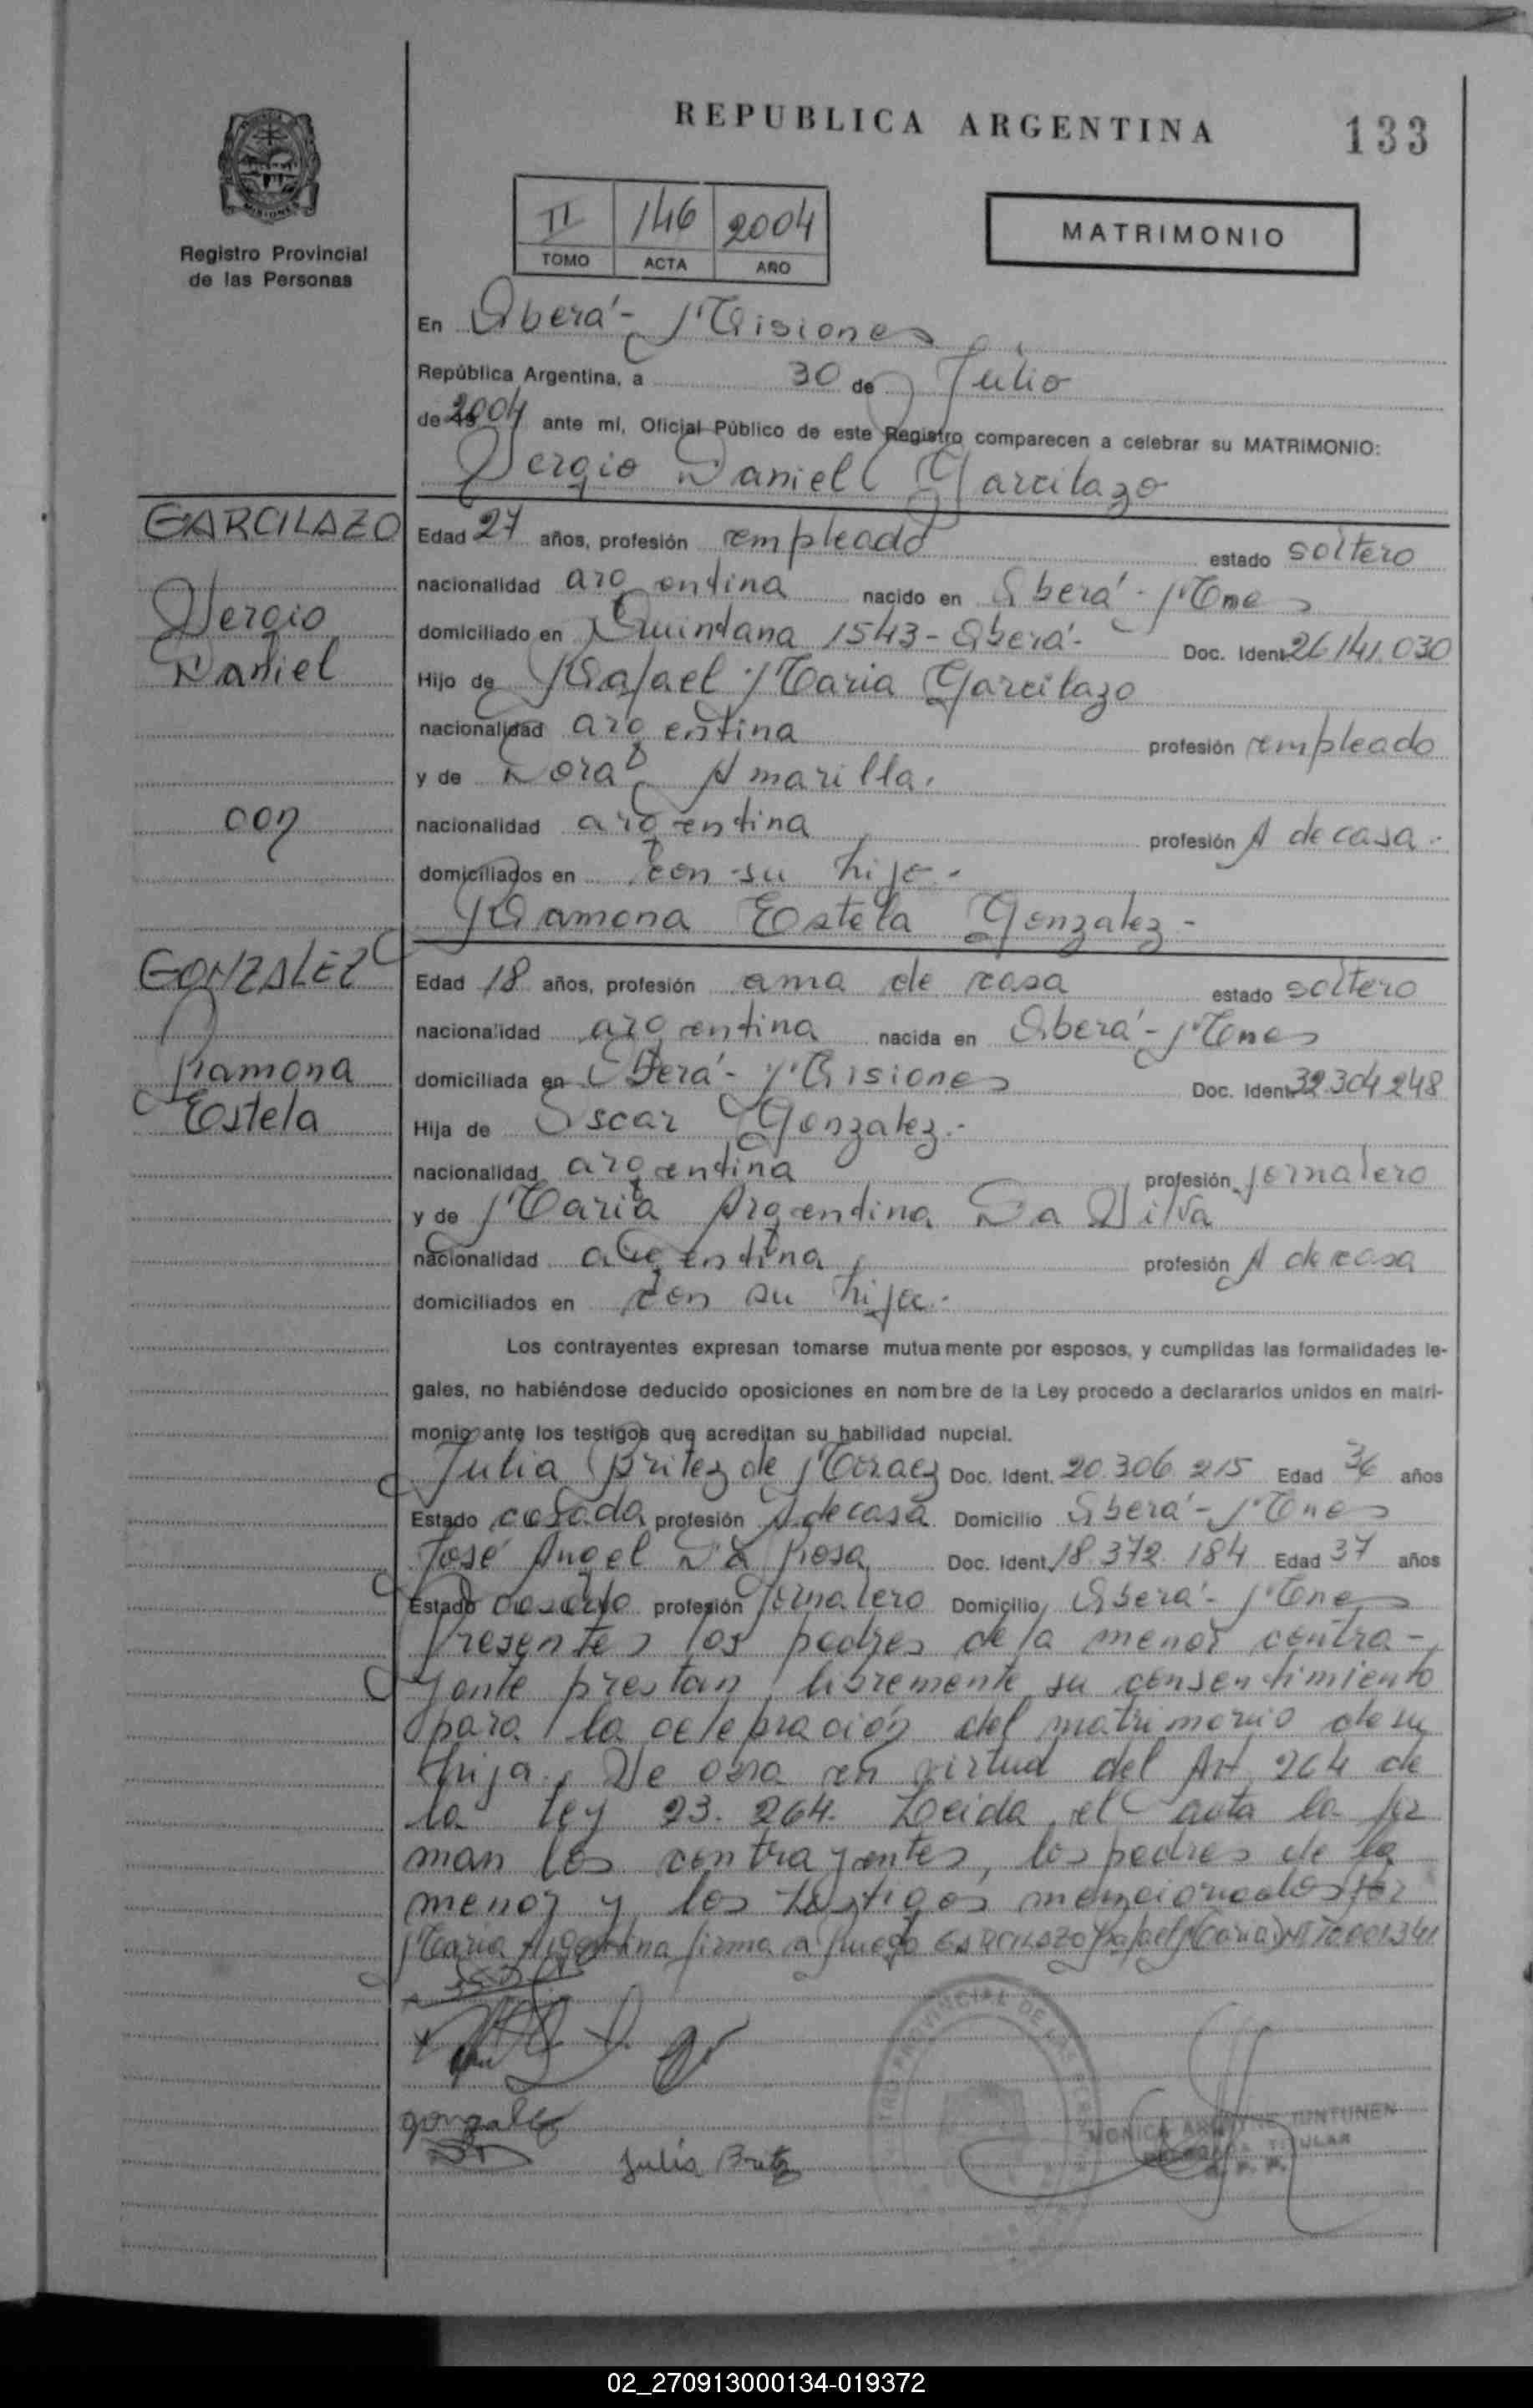 REPUBLICA ARGENTINA
133
MISIONES
Registro Provincial
de las Personas
II 146 2004
TOMO ACTA AÑO
MATRIMONIO
En Oberá - Misiones
República Argentina, a 30 de Julio
de 19 2004 ante mí, Oficial Público de este Registro comparecen a celebrar su MATRIMONIO:
Sergio Daniel Garcilazo
GARCILAZO
Sergio
Daniel
con
GONZALEZ
Ramona
Estela
Edad 27 años, profesión empleado estado soltero
nacionalidad argentina nacido en Oberá - Mnes
domiciliado en Quintana 1543 - Oberá - Doc. Ident. 26.141.030
Hijo de Rafael Maria Garcilazo
nacionalidad argentina profesión empleado
y de Nora Amarilla.
nacionalidad argentina profesión A de casa.-
domiciliados en con su hijo.-
Ramona Estela Gonzalez -
Edad 18 años, profesión ama de casa estado soltero
nacionalidad argentina nacida en Oberá - Mnes
domiciliada en Oberá - Misiones Doc. Ident. 32.304.248
Hija de Oscar Gonzalez.-
nacionalidad argentina profesión jornalero
y de Maria Argentina Da Silva
nacionalidad argentina profesión A de casa
domiciliados en con su hija.-
Los contrayentes expresan tomarse mutuamente por esposos, y cumplidas las formalidades le-
gales, no habiéndose deducido oposiciones en nombre de la Ley procedo a declararlos unidos en matri-
monio ante los testigos que acreditan su habilidad nupcial.
Julia Britez de Moraez Doc. Ident. 20.306.215 Edad 36 años
Estado casada profesión A de casa Domicilio Oberá - Mnes
José Angel Da Rosa Doc. Ident. 18.372.184 Edad 37 años
Estado casado profesión jornalero Domicilio Oberá - Mnes
Presentes los padres de la menor contra-
yente prestan libremente su consentimiento
para la celebración del matrimonio de su
hija. De obra en virtud del Art 264 de
la Ley 23.264. Leida el acta la fir
man los contrayentes, los padres de la
menor y los testigos mencionados por
Maria Argentina firma a ruego GARCILAZO Rafael Maria 10.001.341
gonzalez
Julia Britez
PROVINCIAL DE LAS
MONICA JUNTUNEN
TITULAR
02_270913000134-019372